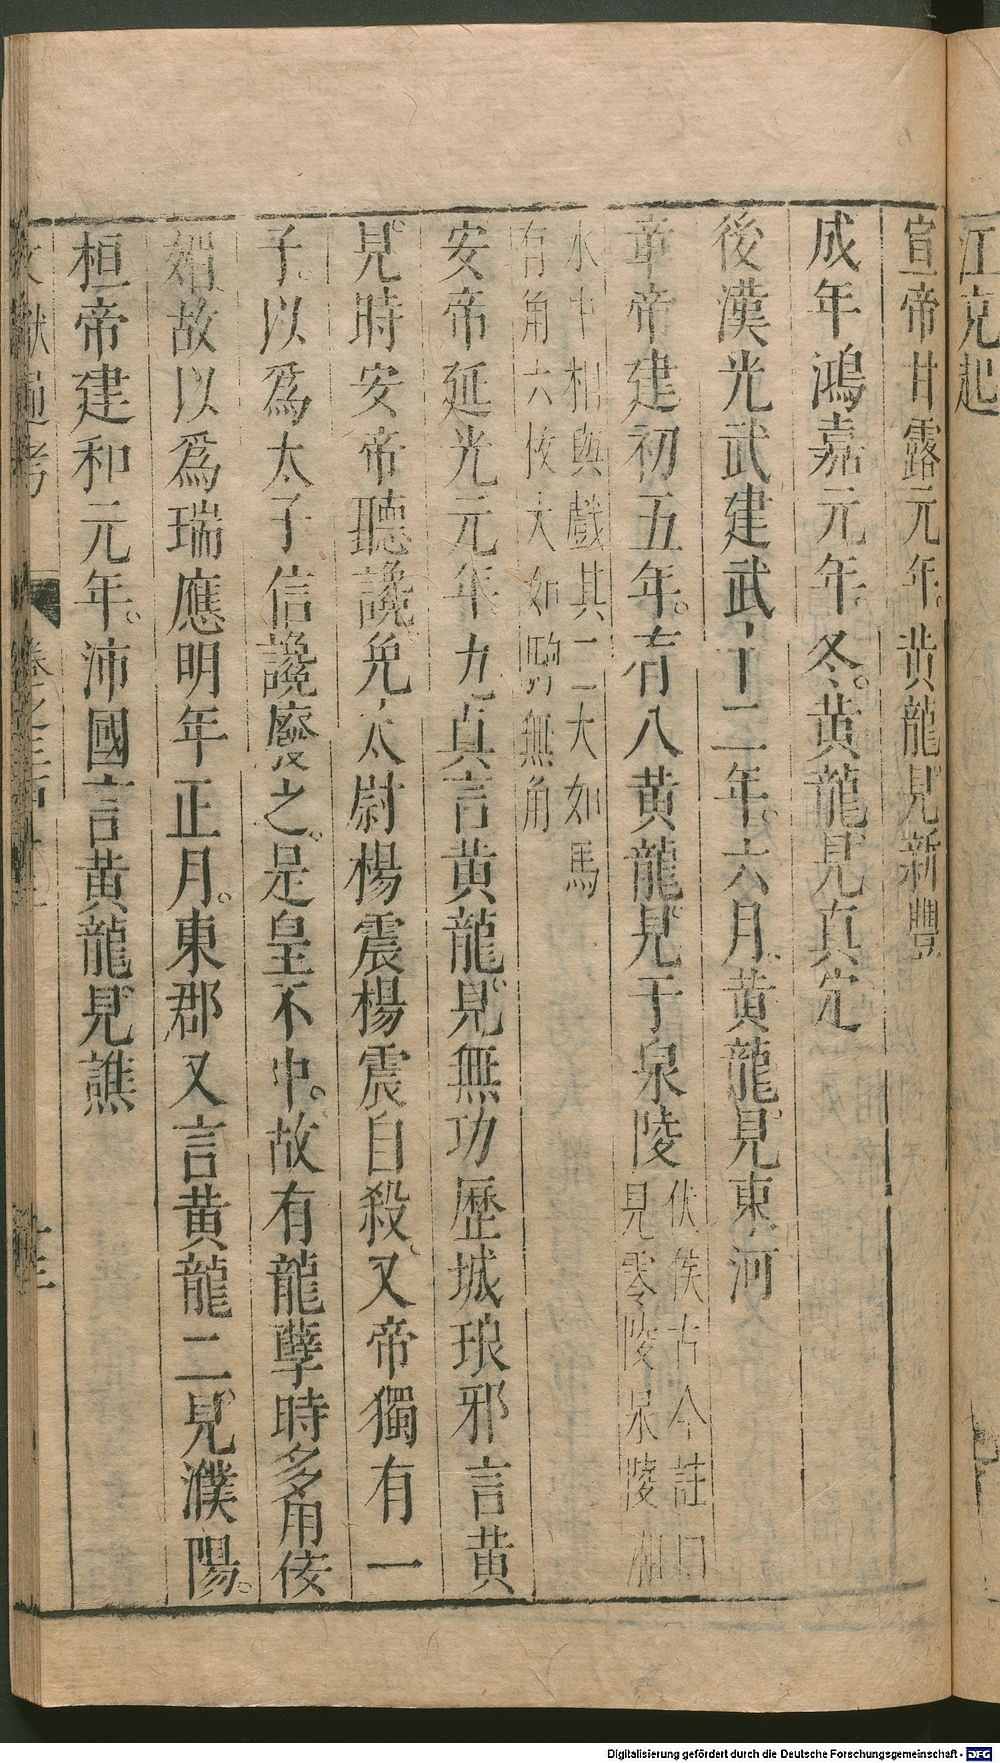 江充起
宣帝甘露元年。黄龍見新豐
成年鴻嘉元年冬。黄龍見真定
後漢光武建武十二年。六月。黄龍見東河
章帝建初五年。有八黄龍見于泉陵
伏侯古今註曰
見零陵泉陵湘
水中相與戲其二大如馬
有角六枚大如駒無角
安帝延光元年九真言黄龍見無功歷城琅邪言黄
見。時安帝聽讒免太尉楊震楊震自殺。又帝獨有一
子。以為太子信讒廢之。是皇不中。故有龍孽時多用佞
媚故以為瑞應明年正月。東郡又言黄龍二見濮陽。
桓帝建和元年。沛國言黄龍見譙
文獻通考
卷之三百十三
十三
Digitalisierung gefördert durch die Deutsche Forschungsgemeinschaft - DFG